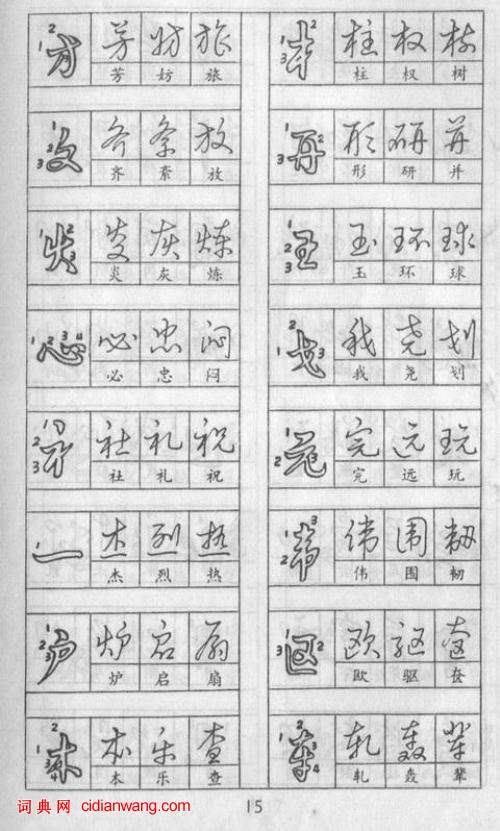 方 芳 妨 旅
芳 妨 旅
文 齐 紊 放
齐 紊 放
火 炎 灰 炼
炎 灰 炼
心 必 忠 闷
必 忠 闷
礻 社 礼 祝
社 礼 祝
灬 杰 烈 热
杰 烈 热
户 炉 启 扇
炉 启 扇
木 本 乐 查
本 乐 查
木 柱 权 树
柱 权 树
开 形 研 并
形 研 并
王 玉 环 球
玉 环 球
戈 我 尧 划
我 尧 划
元 完 远 玩
完 远 玩
韦 伟 围 韧
伟 围 韧
区 欧 驱 奁
欧 驱 奁
车 轧 轰 辈
轧 轰 辈
词典网 cidianwang.com
15